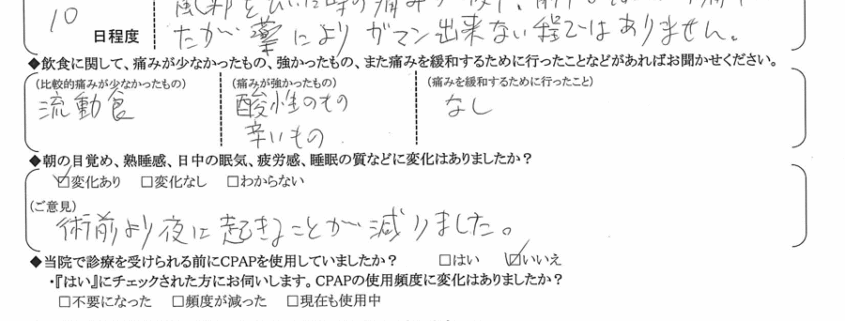 風邪をひいた時の痛み
10
日程度
たが薬によりガマン出来ない程ではありません。
◆飲食に関して、痛みが少なかったもの、強かったもの、また痛みを緩和するために行ったことなどがあればお聞かせください。
(比較的痛みが少なかったもの) (痛みが強かったもの) (痛みを緩和するために行ったこと)
流動食 酸性のもの なし
辛いもの
◆朝の目覚め、熟睡感、日中の眠気、疲労感、睡眠の質などに変化はありましたか?
☑変化あり □変化なし □わからない
(ご意見)
術前より夜に起きることが減りました。
◆当院で診療を受けられる前にCPAPを使用していましたか? □はい ☑いいえ
・『はい』にチェックされた方にお伺いします。CPAPの使用頻度に変化はありましたか?
□不要になった □頻度が減った □現在も使用中